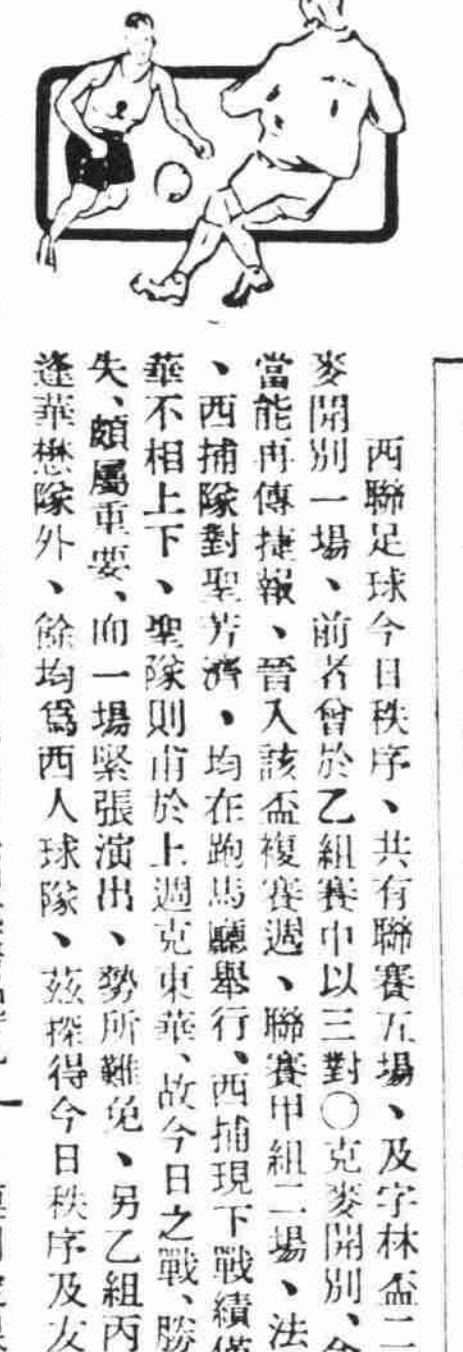 西聯足球今日秩序、共有聯賽五場、及字林盃二
麥開別一場、前者曾於乙組賽中以三對〇克麥開別、
當能再傳捷報、晉入該盃複賽週、聯賽甲組二場、法
、西捕隊對聖芳濟、均在跑馬廳舉行、西捕現下戰績僅
華不相上下、聖隊則甫於上週克東華、故今日之戰、勝
失、頗屬重要、而一場緊張演出、勢所難免、另乙組丙
逢華懋隊外、餘均爲西人球隊、茲探得今日秩序及友